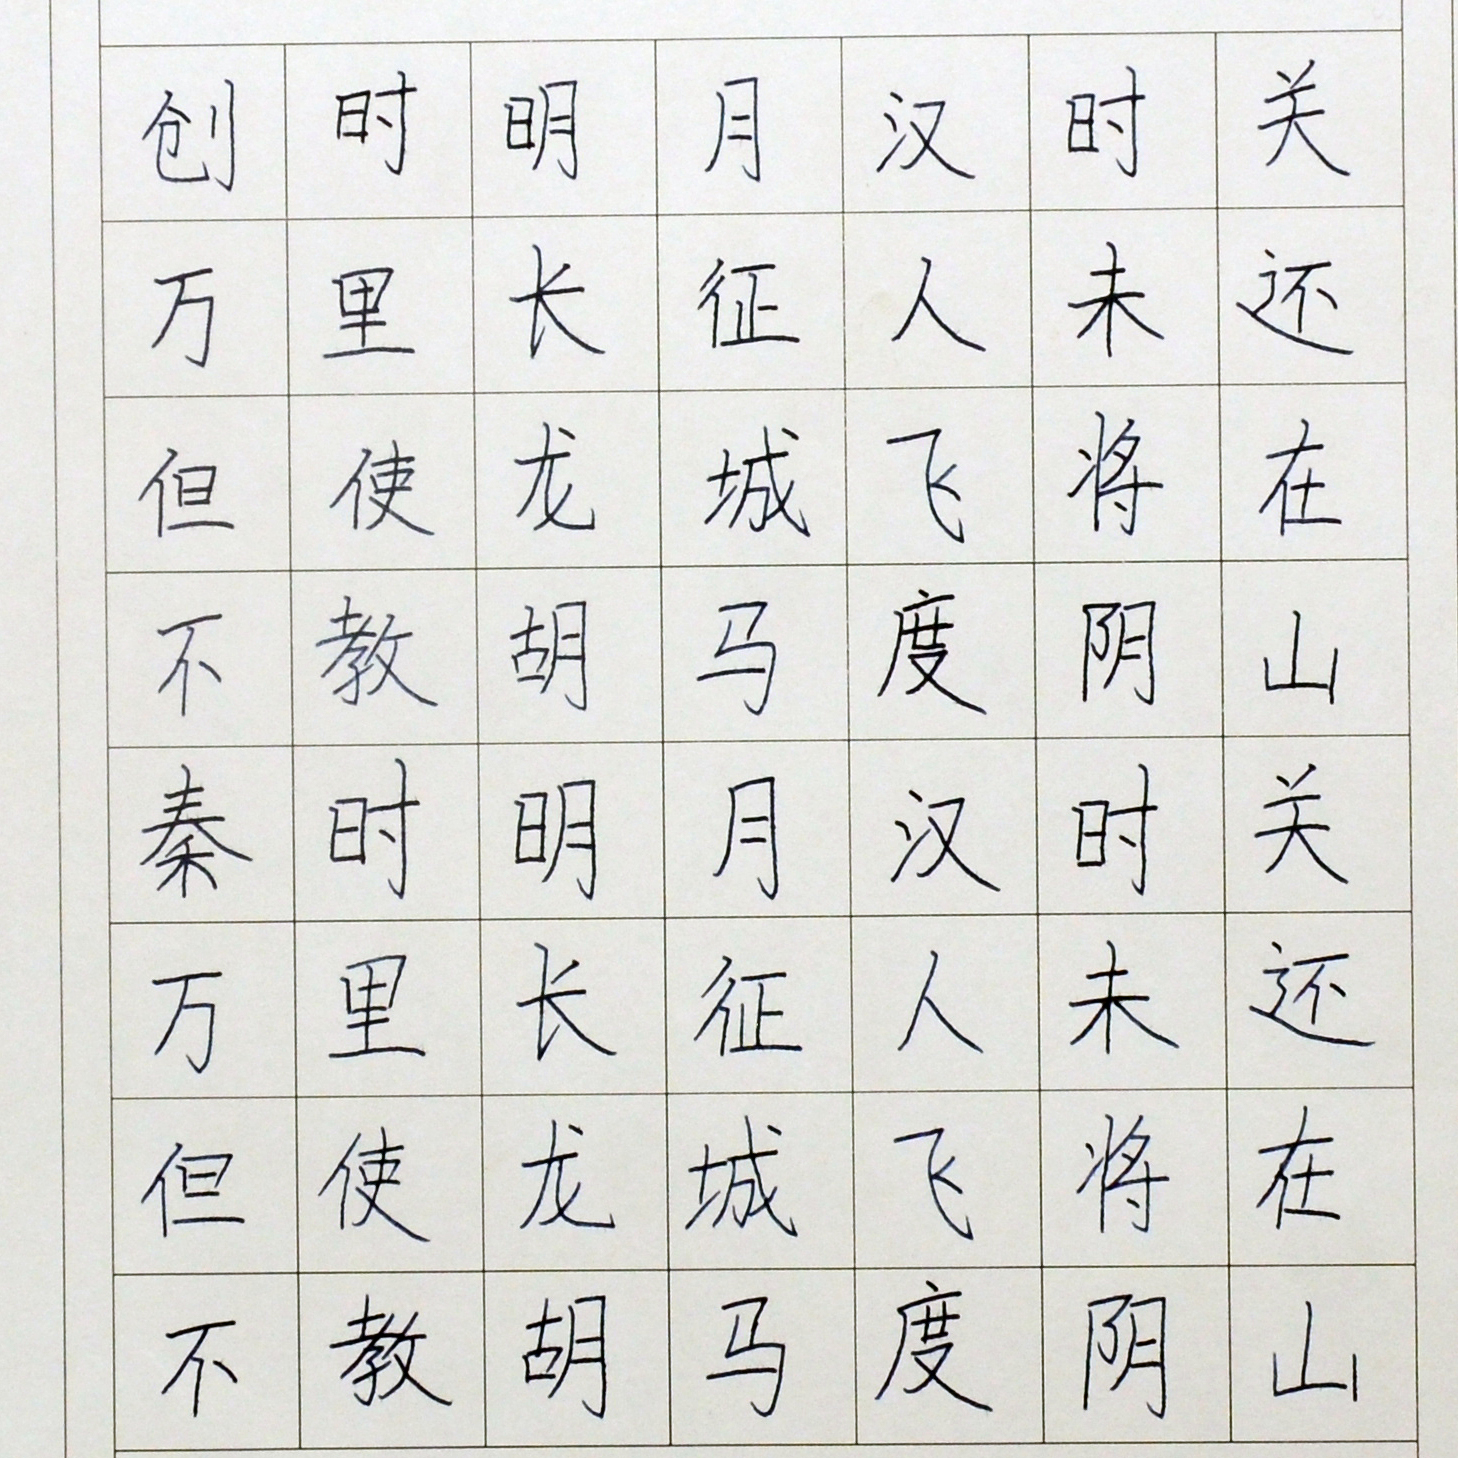 创时明月汉时关
万里长征人未还
但使龙城飞将在
不教胡马度阴山
秦时明月汉时关
万里长征人未还
但使龙城飞将在
不教胡马度阴山